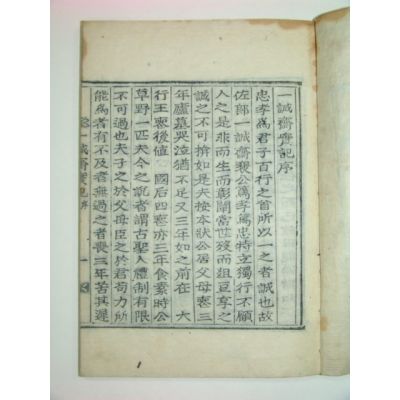 一誠齋實記序
忠孝爲君子百行之首所以一之者誠也故
佐郎一誠齋裵公篤孝篤忠特立獨行不顧
人之是非而生而 世歿而俎豆享之
誠之不可揜如是夫按本狀公居父母喪三
年廬墓哭泣猶不足又三年如之前在 大
行王喪後値 國后四喪亦三年食素時公
草野一匹夫今之說者謂古聖人體制有限
不可過也夫子之於父母臣之於君苟力所
能爲者有不及者無過之者喪三年苦其遲
一誠齋實記序 一